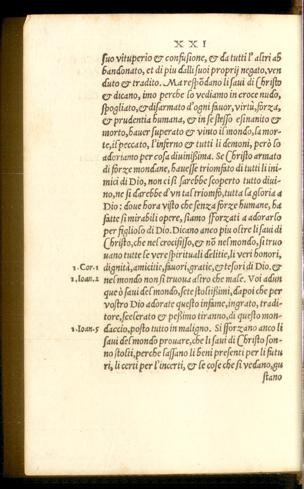 XXI
suo vituperio & confusione, & da tutti l'altri ab
bandonato, et di piu dalli suoi proprij negato, ven
duto & tradito. Ma respōdano li savi di Christo
& dicano, imo perche lo vediamo in croce nudo,
spogliato, & disarmato d'ogni favor, virtù, forza,
& prudentia humana, & in se stesso exinanito &
morto, haver superato & vinto il mondo, la mor-
te, il peccato, l'inferno & tutti li demoni, però lo
adoriamo per cosa divinissima. Se Christo armato
di forze mondane, havesse triomfato di tutti li ini
mici di Dio, non ci si sarebbe scoperto tutto divi
no, ne si darebbe d'vn tal triomfo, tutta la gloria a
Dio: dove hora visto che senza forze humane, ha
fatte si mirabili opere, siamo sforzati a adorarlo
per figliolo di Dio. Dicano anco piu oltre li savi di
Christo, che nel crocifisso, & nō nel mondo, si tro
vano tutte le vere spirituali delitie, li veri honori,
2. Cor. 1 dignità, amicitie, favori, gratie, & tesori di Dio, &
1. Ioan. 2 nel mondo non si truova altro che male. Voi adun
que ò savi del mondo, sete stoltissimi, da poi che per
vostro Dio adorate questo infame, ingrato, tradi-
tore, scelerato & pessimo tiranno, di questo mon-
1. Ioan. 5 daccio, posto tutto in maligno. Si sforzano anco li
savi del mondo provare, che li savi di Christo son-
no stolti, perche lassano li beni presenti per li futu
ri, li certi per l'incerti, & le cose che si vedano, gu
stano